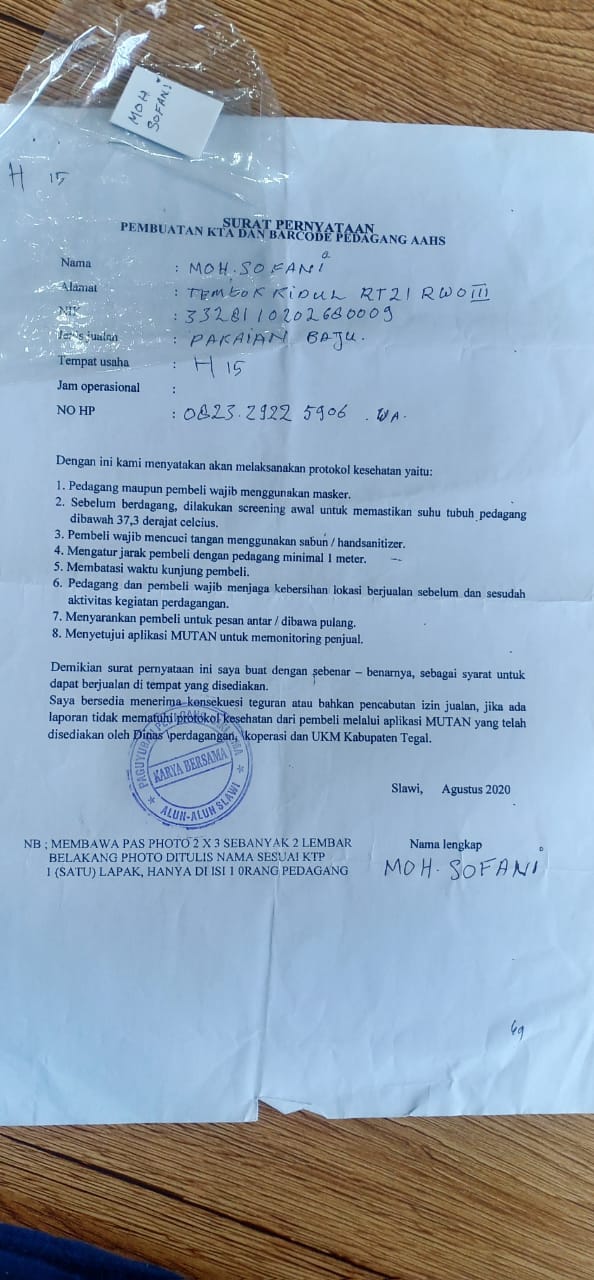 MOH
SOFANI
H 15
SURAT PERNYATAAN
PEMBUATAN KTA DAN BARCODE PEDAGANG AAHS
Nama : MOH.SOFANI
Alamat : TEMBOK KIDUL RT21 RW0III
NIK : 3328110202680009
Jenis jualan : PAKAIAN BAJU.
Tempat usaha : H 15
Jam operasional :
NO HP : 0823.2922 5906 . WA.
Dengan ini kami menyatakan akan melaksanakan protokol kesehatan yaitu:
1. Pedagang maupun pembeli wajib menggunakan masker.
2. Sebelum berdagang, dilakukan screening awal untuk memastikan suhu tubuh pedagang
dibawah 37,3 derajat celcius.
3. Pembeli wajib mencuci tangan menggunakan sabun / handsanitizer.
4. Mengatur jarak pembeli dengan pedagang minimal 1 meter.
5. Membatasi waktu kunjung pembeli.
6. Pedagang dan pembeli wajib menjaga kebersihan lokasi berjualan sebelum dan sesudah
aktivitas kegiatan perdagangan.
7. Menyarankan pembeli untuk pesan antar / dibawa pulang.
8. Menyetujui aplikasi MUTAN untuk memonitoring penjual.
Demikian surat pernyataan ini saya buat dengan sebenar – benarnya, sebagai syarat untuk
dapat berjualan di tempat yang disediakan.
Saya bersedia menerima konsekuesi teguran atau bahkan pencabutan izin jualan, jika ada
laporan tidak mematuhi protokol kesehatan dari pembeli melalui aplikasi MUTAN yang telah
disediakan oleh Dinas perdagangan, koperasi dan UKM Kabupaten Tegal.
KARYA BERSAMA
ALUN-ALUN SLAWI
Slawi, Agustus 2020
NB ; MEMBAWA PAS PHOTO 2 X 3 SEBANYAK 2 LEMBAR
BELAKANG PHOTO DITULIS NAMA SESUAI KTP
1 (SATU) LAPAK, HANYA DI ISI 1 0RANG PEDAGANG
Nama lengkap
MOH.SOFANI